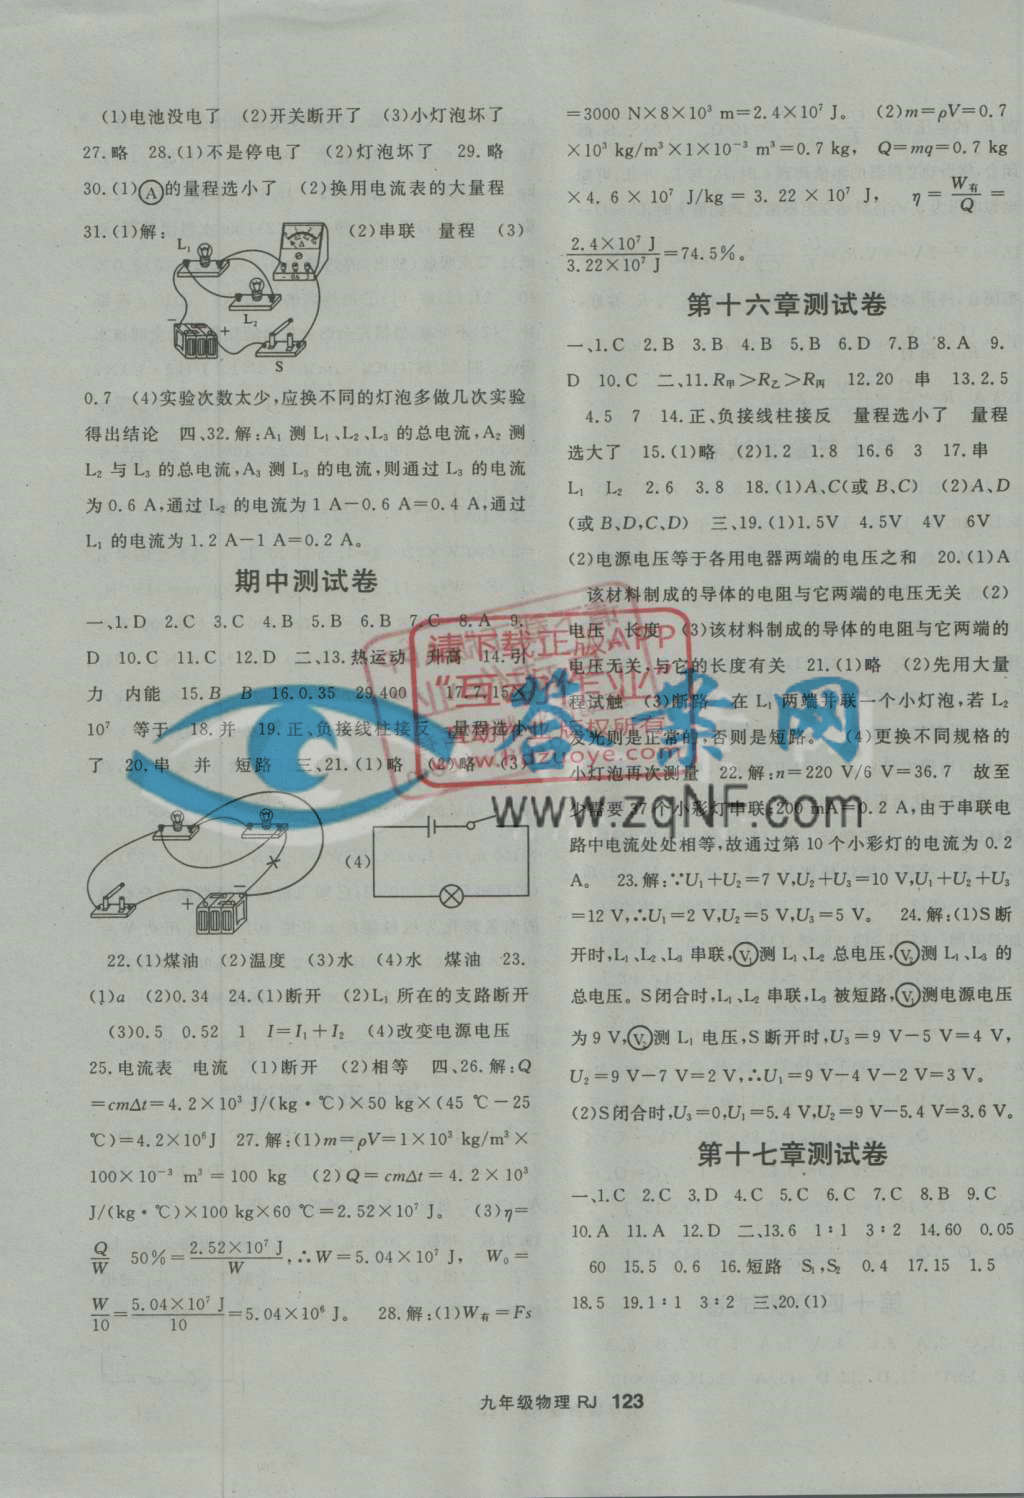 (1)电池没电了 (2)开关断开了 (3)小灯泡坏了
27.略 28.(1)不是停电了 (2)灯泡坏了 29.略
30.(1)Ⓐ的量程选小了 (2)换用电流表的大量程
31.(1)解: (2)串联 量程 (3)
L₁
L₂
S
0.7 (4)实验次数太少,应换不同的灯泡多做几次实验
得出结论 四、32.解:A₁ 测 L₁、L₂、L₃ 的总电流,A₂ 测
L₂ 与 L₃ 的总电流,A₃ 测 L₃ 的电流,则通过 L₃ 的电流
为 0.6 A,通过 L₂ 的电流为 1 A－0.6 A＝0.4 A,通过
L₁ 的电流为 1.2 A－1 A＝0.2 A。
期中测试卷
一、1.D 2.C 3.C 4.B 5.B 6.B 7.C 8.A 9.
D 10.C 11.C 12.D 二、13.热运动 升高 14.引
力 内能 15.B B 16.0.35 29.400 17.7.15×
10⁷ 等于 18.并 19.正、负接线柱接反 量程选小
了 20.串 并 短路 三、21.(1)略 (2)略 (3)
(4)
22.(1)煤油 (2)温度 (3)水 (4)水 煤油 23.
(1)a (2)0.34 24.(1)断开 (2)L₁ 所在的支路断开
(3)0.5 0.52 1 I＝I₁＋I₂ (4)改变电源电压
25.电流表 电流 (1)断开 (2)相等 四、26.解:Q
＝cmΔt＝4.2×10³ J/(kg·℃)×50 kg×(45 ℃－25
℃)＝4.2×10⁶J 27.解:(1)m＝ρV＝1×10³ kg/m³×
100×10⁻³ m³＝100 kg (2)Q＝cmΔt＝4.2×10³
J/(kg·℃)×100 kg×60 ℃＝2.52×10⁷ J。 (3)η＝
Q/W 50%＝2.52×10⁷ J/W,∴W＝5.04×10⁷ J, W₀＝
W/10＝5.04×10⁷ J/10＝5.04×10⁶ J。 28.解:(1)W有＝Fs
＝3000 N×8×10³ m＝2.4×10⁷ J。 (2)m＝ρV＝0.7
×10³ kg/m³×1×10⁻³ m³＝0.7 kg, Q＝mq＝0.7 kg
×4.6×10⁷ J/kg＝3.22×10⁷ J, η＝W有/Q＝
2.4×10⁷ J/3.22×10⁷ J＝74.5%。
第十六章测试卷
一、1.C 2.B 3.B 4.B 5.B 6.D 7.B 8.A 9.
D 10.C 二、11.R甲＞R乙＞R丙 12.20 串 13.2.5
4.5 7 14.正、负接线柱接反 量程选小了 量程
选大了 15.(1)略 (2)1.2 1.8 16.6 3 17.串
L₁ L₂ 2.6 3.8 18.(1)A、C(或 B、C) (2)A、D
(或 B、D,C、D) 三、19.(1)1.5V 4.5V 4V 6V
(2)电源电压等于各用电器两端的电压之和 20.(1)A
该材料制成的导体的电阻与它两端的电压无关 (2)
电压 长度 (3)该材料制成的导体的电阻与它两端的
电压无关,与它的长度有关 21.(1)略 (2)先用大量
程试触 (3)断路 在 L₁ 两端并联一个小灯泡,若 L₂
发光则是正常的,否则是短路。 (4)更换不同规格的
小灯泡再次测量 22.解:n＝220 V/6 V＝36.7 故至
少需要 37 个小彩灯串联;200 mA＝0.2 A,由于串联电
路中电流处处相等,故通过第 10 个小彩灯的电流为 0.2
A。 23.解:∵U₁＋U₂＝7 V,U₂＋U₃＝10 V,U₁＋U₂＋U₃
＝12 V,∴U₁＝2 V,U₂＝5 V,U₃＝5 V。 24.解:(1)S 断
开时,L₁、L₂、L₃ 串联,测 L₁、L₂ 总电压,测 L₁、L₃ 的
总电压。S闭合时,L₁、L₂ 串联,L₃ 被短路,测电源电压
为 9 V,测 L₁ 电压,S 断开时,U₃＝9 V－5 V＝4 V,
U₂＝9 V－7 V＝2 V,∴U₁＝9 V－4 V－2 V＝3 V。
(2)S闭合时,U₃＝0,U₁＝5.4 V,U₂＝9 V－5.4 V＝3.6 V。
第十七章测试卷
一、1.C 2.C 3.D 4.C 5.C 6.C 7.C 8.B 9.C
10.A 11.A 12.D 二、13.6 1∶1 3∶2 14.60 0.05
60 15.5 0.6 16.短路 S₁,S₂ 0.4 17.15 1.5
18.5 19.1∶1 3∶2 三、20.(1)
九年级物理 RJ 123
请下载正版APP
www.zqNF.com